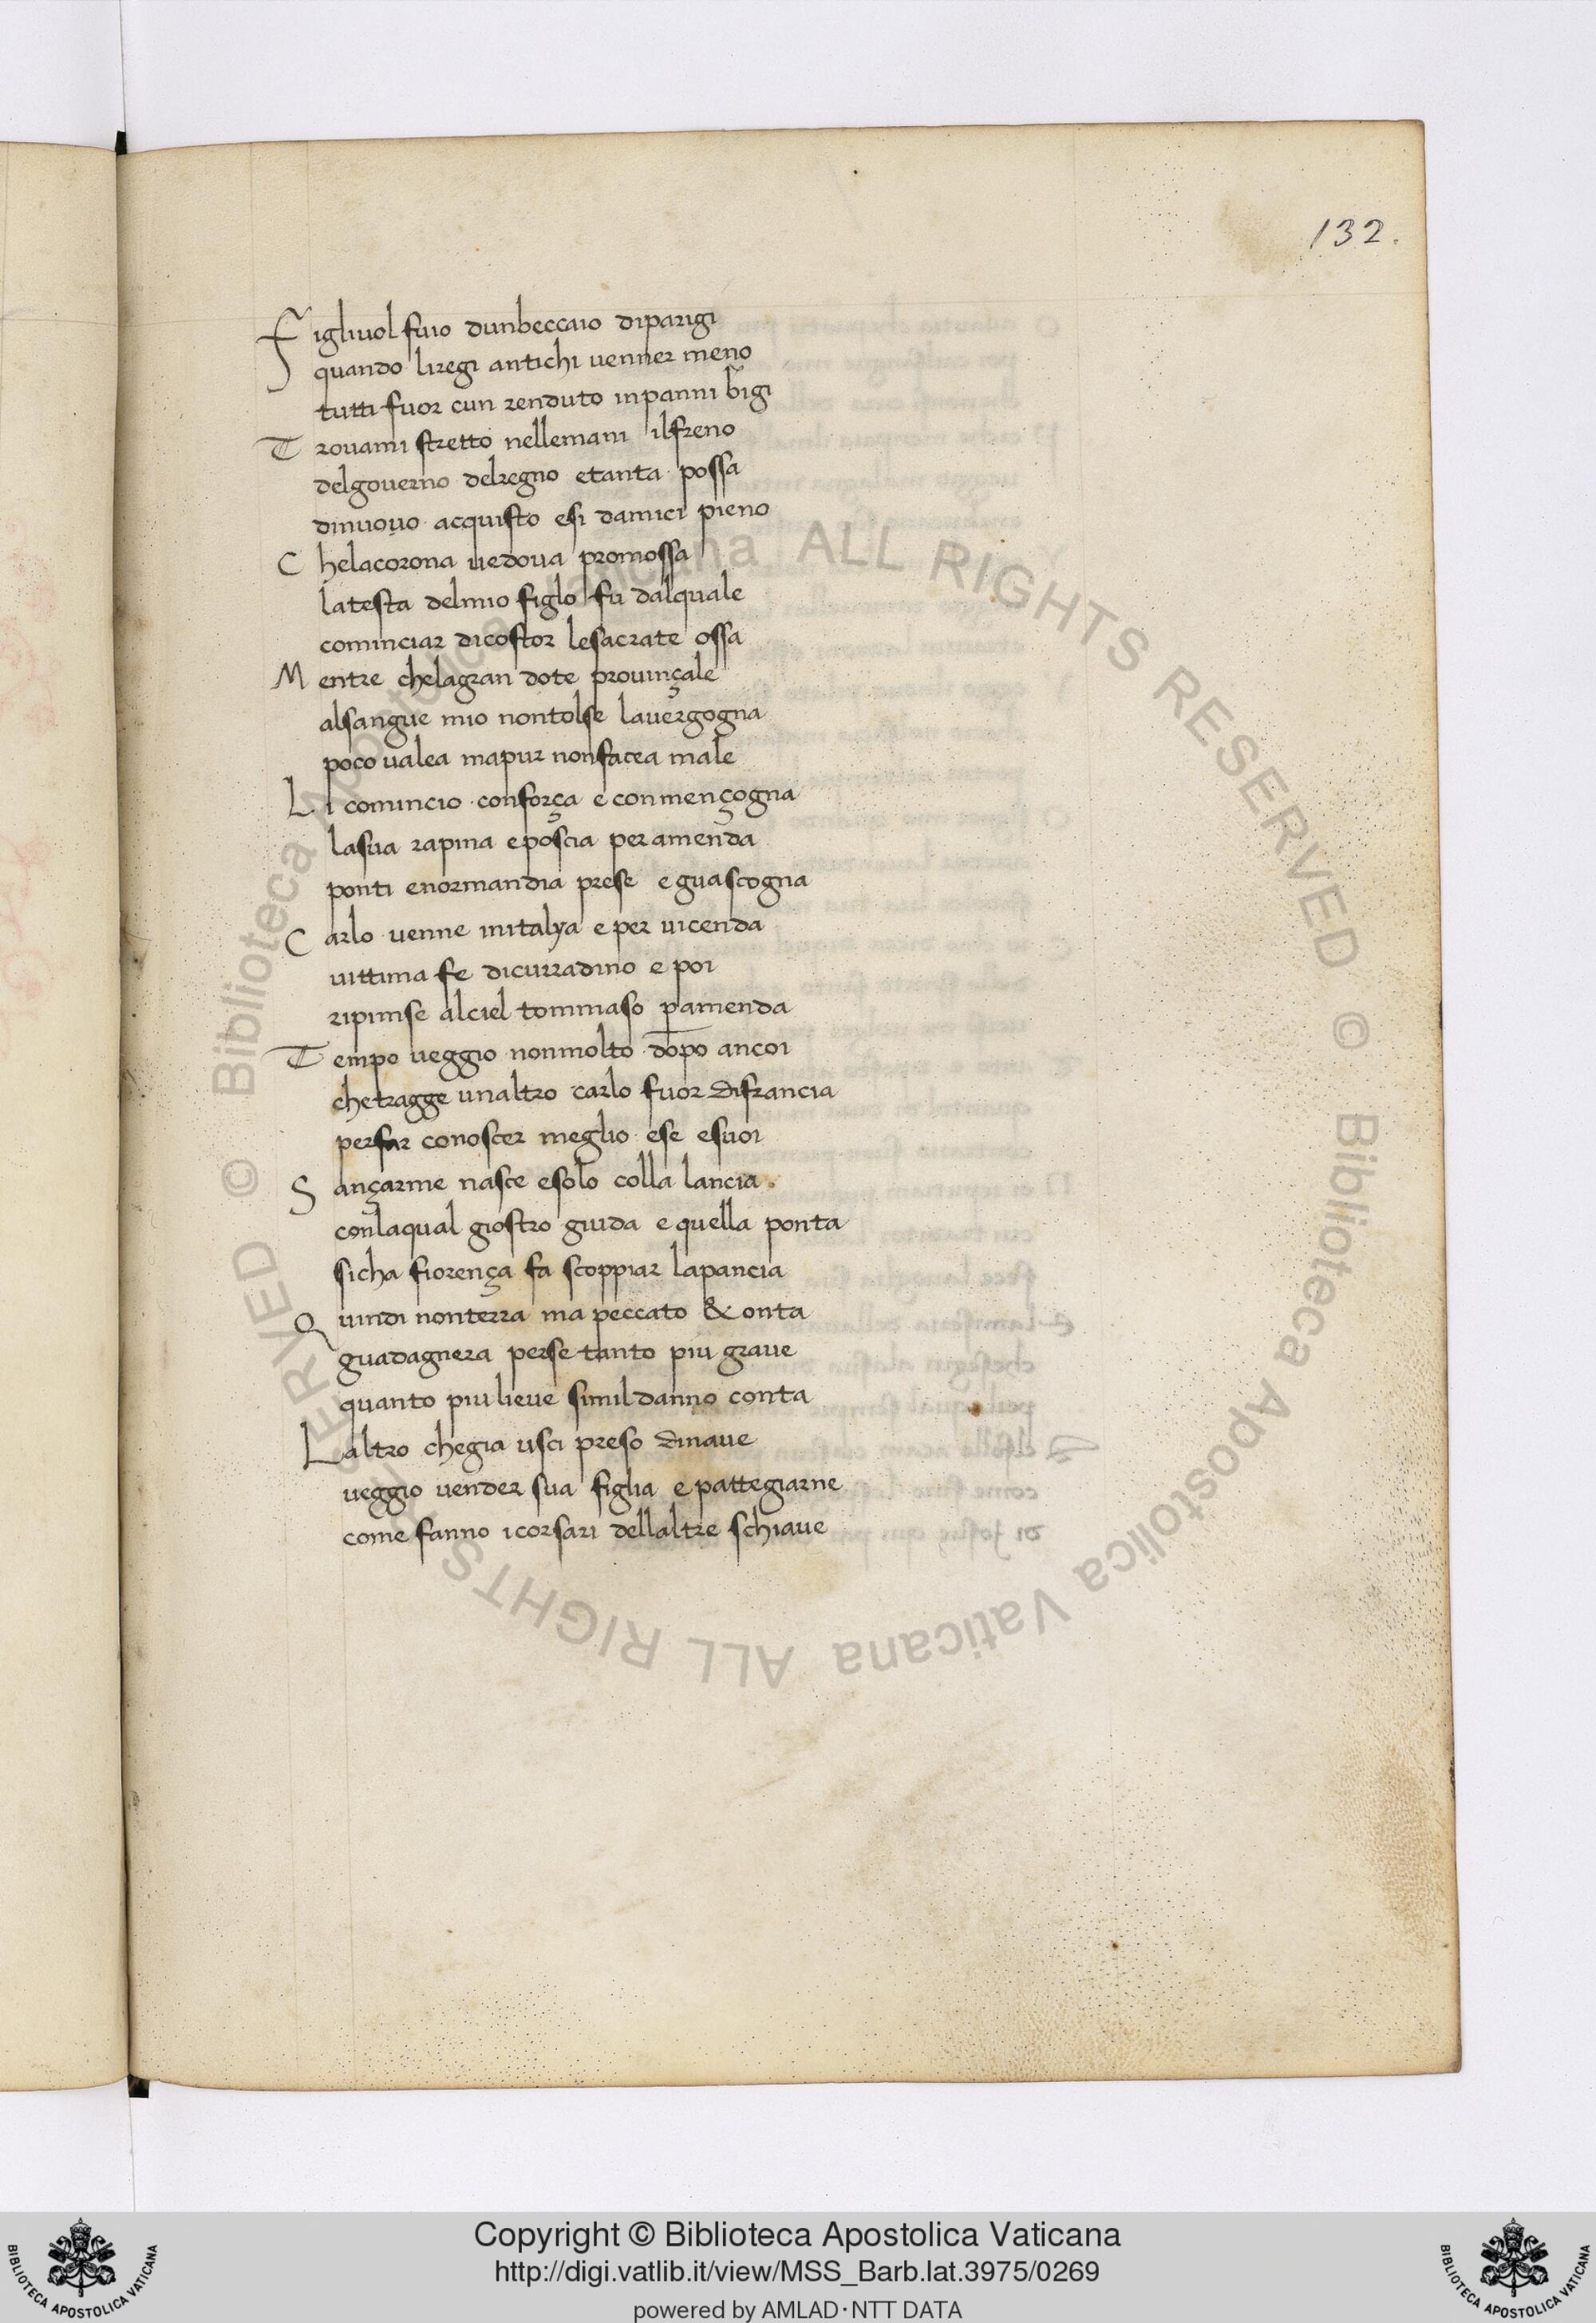 132.
Figliuol fuio dunbeccaio diparigi
quando liregi antichi uenner meno
tutti fuor cun renduto inpanni bigi
Trouami stretto nellemani ilfreno
delgouerno delregno etanta possa
dinuouo acquisto esi damici pieno
Chelacorona uedoua promossa
latesta delmio figlo fu dalquale
cominciar dicostor lesacrate ossa
Mentre chelagran dote prouinçale
alsangue mio nontolse lauergogna
poco ualea mapur nonfacea male
Li comincio conforça e conmençogna
lasua rapina eposcia per amenda
ponti enormandia prese e guascogna
Carlo uenne initalya e per uicenda
uittima fe dicurradino e poi
ripinse alciel tommaso p̱amenda
Tempo ueggio nonmolto dopo ancoi
chetragge unaltro carlo fuor difrancia
perfar conoscer meglio ese esuoi
Sançarme nasce esolo colla lancia
conlaqual giostro giuda e quella ponta
sicha fiorença fa scoppiar lapancia
Quindi nonterra ma peccato & onta
guadagnera perse tanto piu graue
quanto piu lieue simil danno conta
Laltro chegia usci preso dinaue
ueggio uender sua figlia e pattegiarne
come fanno icorsari dellaltre schiaue
© Biblioteca Apostolica Vaticana ALL RIGHTS RESERVED © Biblioteca Apostolica Vaticana ALL RIGHTS RESERVED
Copyright © Biblioteca Apostolica Vaticana
http://digi.vatlib.it/view/MSS_Barb.lat.3975/0269
powered by AMLAD·NTT DATA
BIBLIOTECA APOSTOLICA VATICANA
BIBLIOTECA APOSTOLICA VATICANA